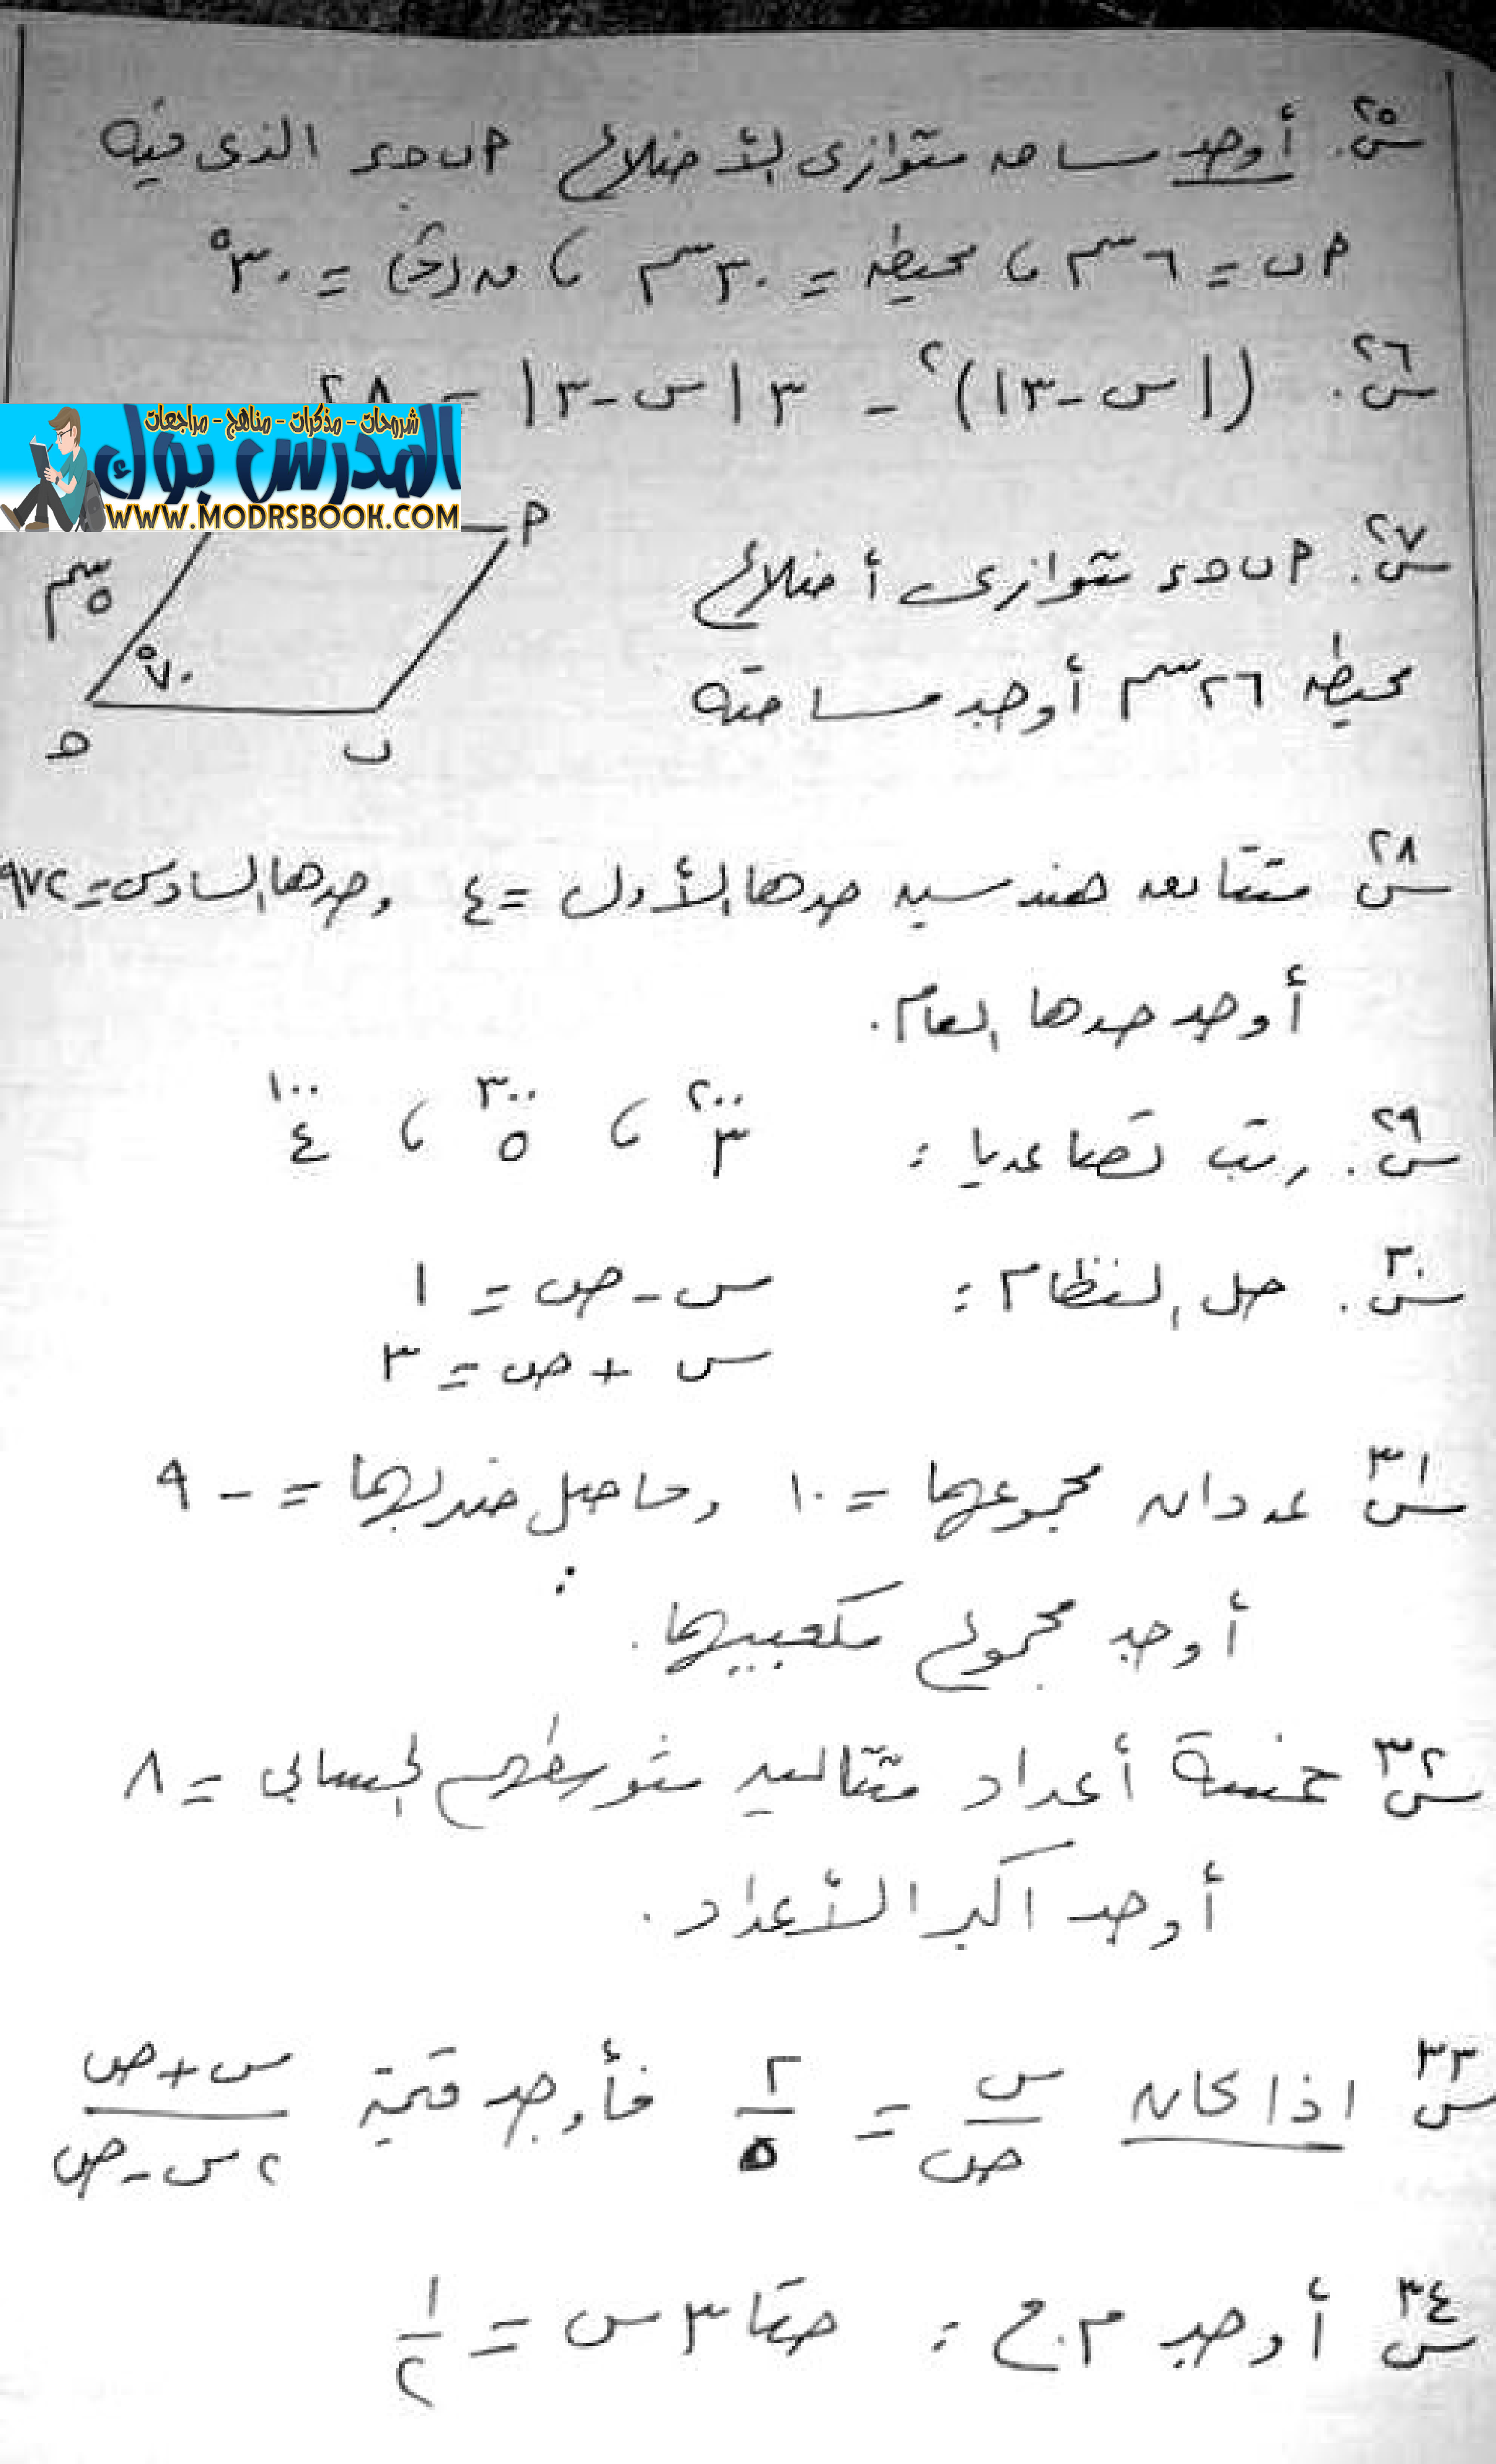 س٢٥. أوجد مساحه متوازى الأضلاع P ب ح د الذى فيه
P ب = ٦ سم ، محيطه = ٣٠ سم ، = ٣٠°
س٢٦. (|س-٣|)٢ - ٣|س-٣| = ٢٨
شروحات - مذكرات - مناهج - مراجعات
المدرس بوك
WWW.MODRSBOOK.COM
P
٥سم
٧٠°
ح ب
س٢٧. P ب ح د متوازى أضلاع
محيطه ٢٦ سم أوجد مساحته
س٢٨ متتابعه هندسيه حدها الأول = ٤ وحدها السادس = ٩٧٢
أوجد حدها العام.
س٢٩. رتب تصاعديا : ٣^٢٠٠ ، ٥^٣٠٠ ، ٤^١٠٠
س٣٠. حل النظام : س - ص = ١
س + ص = ٣
س٣١ عددان مجموعهما = ١٠ وحاصل ضربهما = - ٩
أوجد مجموع مكعبيهما.
س٣٢ خمسة أعداد متتاليه متوسطهم الحسابى = ٨
أوجد اكبر الأعداد.
س٣٣ اذا كان س/ص = ٢/٥ فأوجد قيمة س+ص/٢س-ص
س٣٤ أوجد م.ح : حتا ٣س = ١/٢